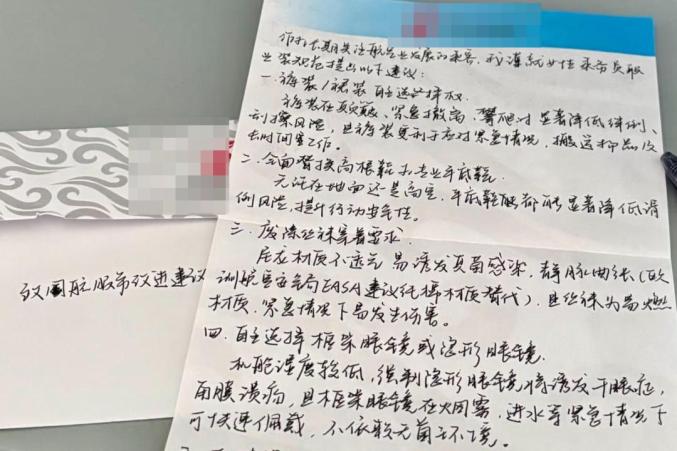 作为长期关注航空业发展的乘客，我谨就女性乘务员职
业装规范提出以下建议：
一. 裤装/裙装自主选择权.
裤装在灭火、紧急撤离、攀爬时显著降低绊倒、
刮擦风险，且裤装更利于应对紧急情况，搬运物品及
长时间客舱工作。
二. 全面替换高跟鞋为专业平底鞋.
无论在地面还是高空，平底鞋履都能显著降低滑
倒风险，提升行动安全性。
三. 废除丝袜穿着要求.
尼龙材质不透气易诱发真菌感染，静脉曲张（欧
洲航空安全局EASA建议纯棉材质替代），且丝袜为易燃
材质，紧急情况下易发生伤害。
四. 自主选择框架眼镜或隐形眼镜.
机舱湿度较低，强制隐形眼镜将诱发干眼症，
角膜溃疡，且框架眼镜在火烟雾，进水等紧急情况下
可快速佩戴，不依赖无菌环境。
致国航服饰改进建议